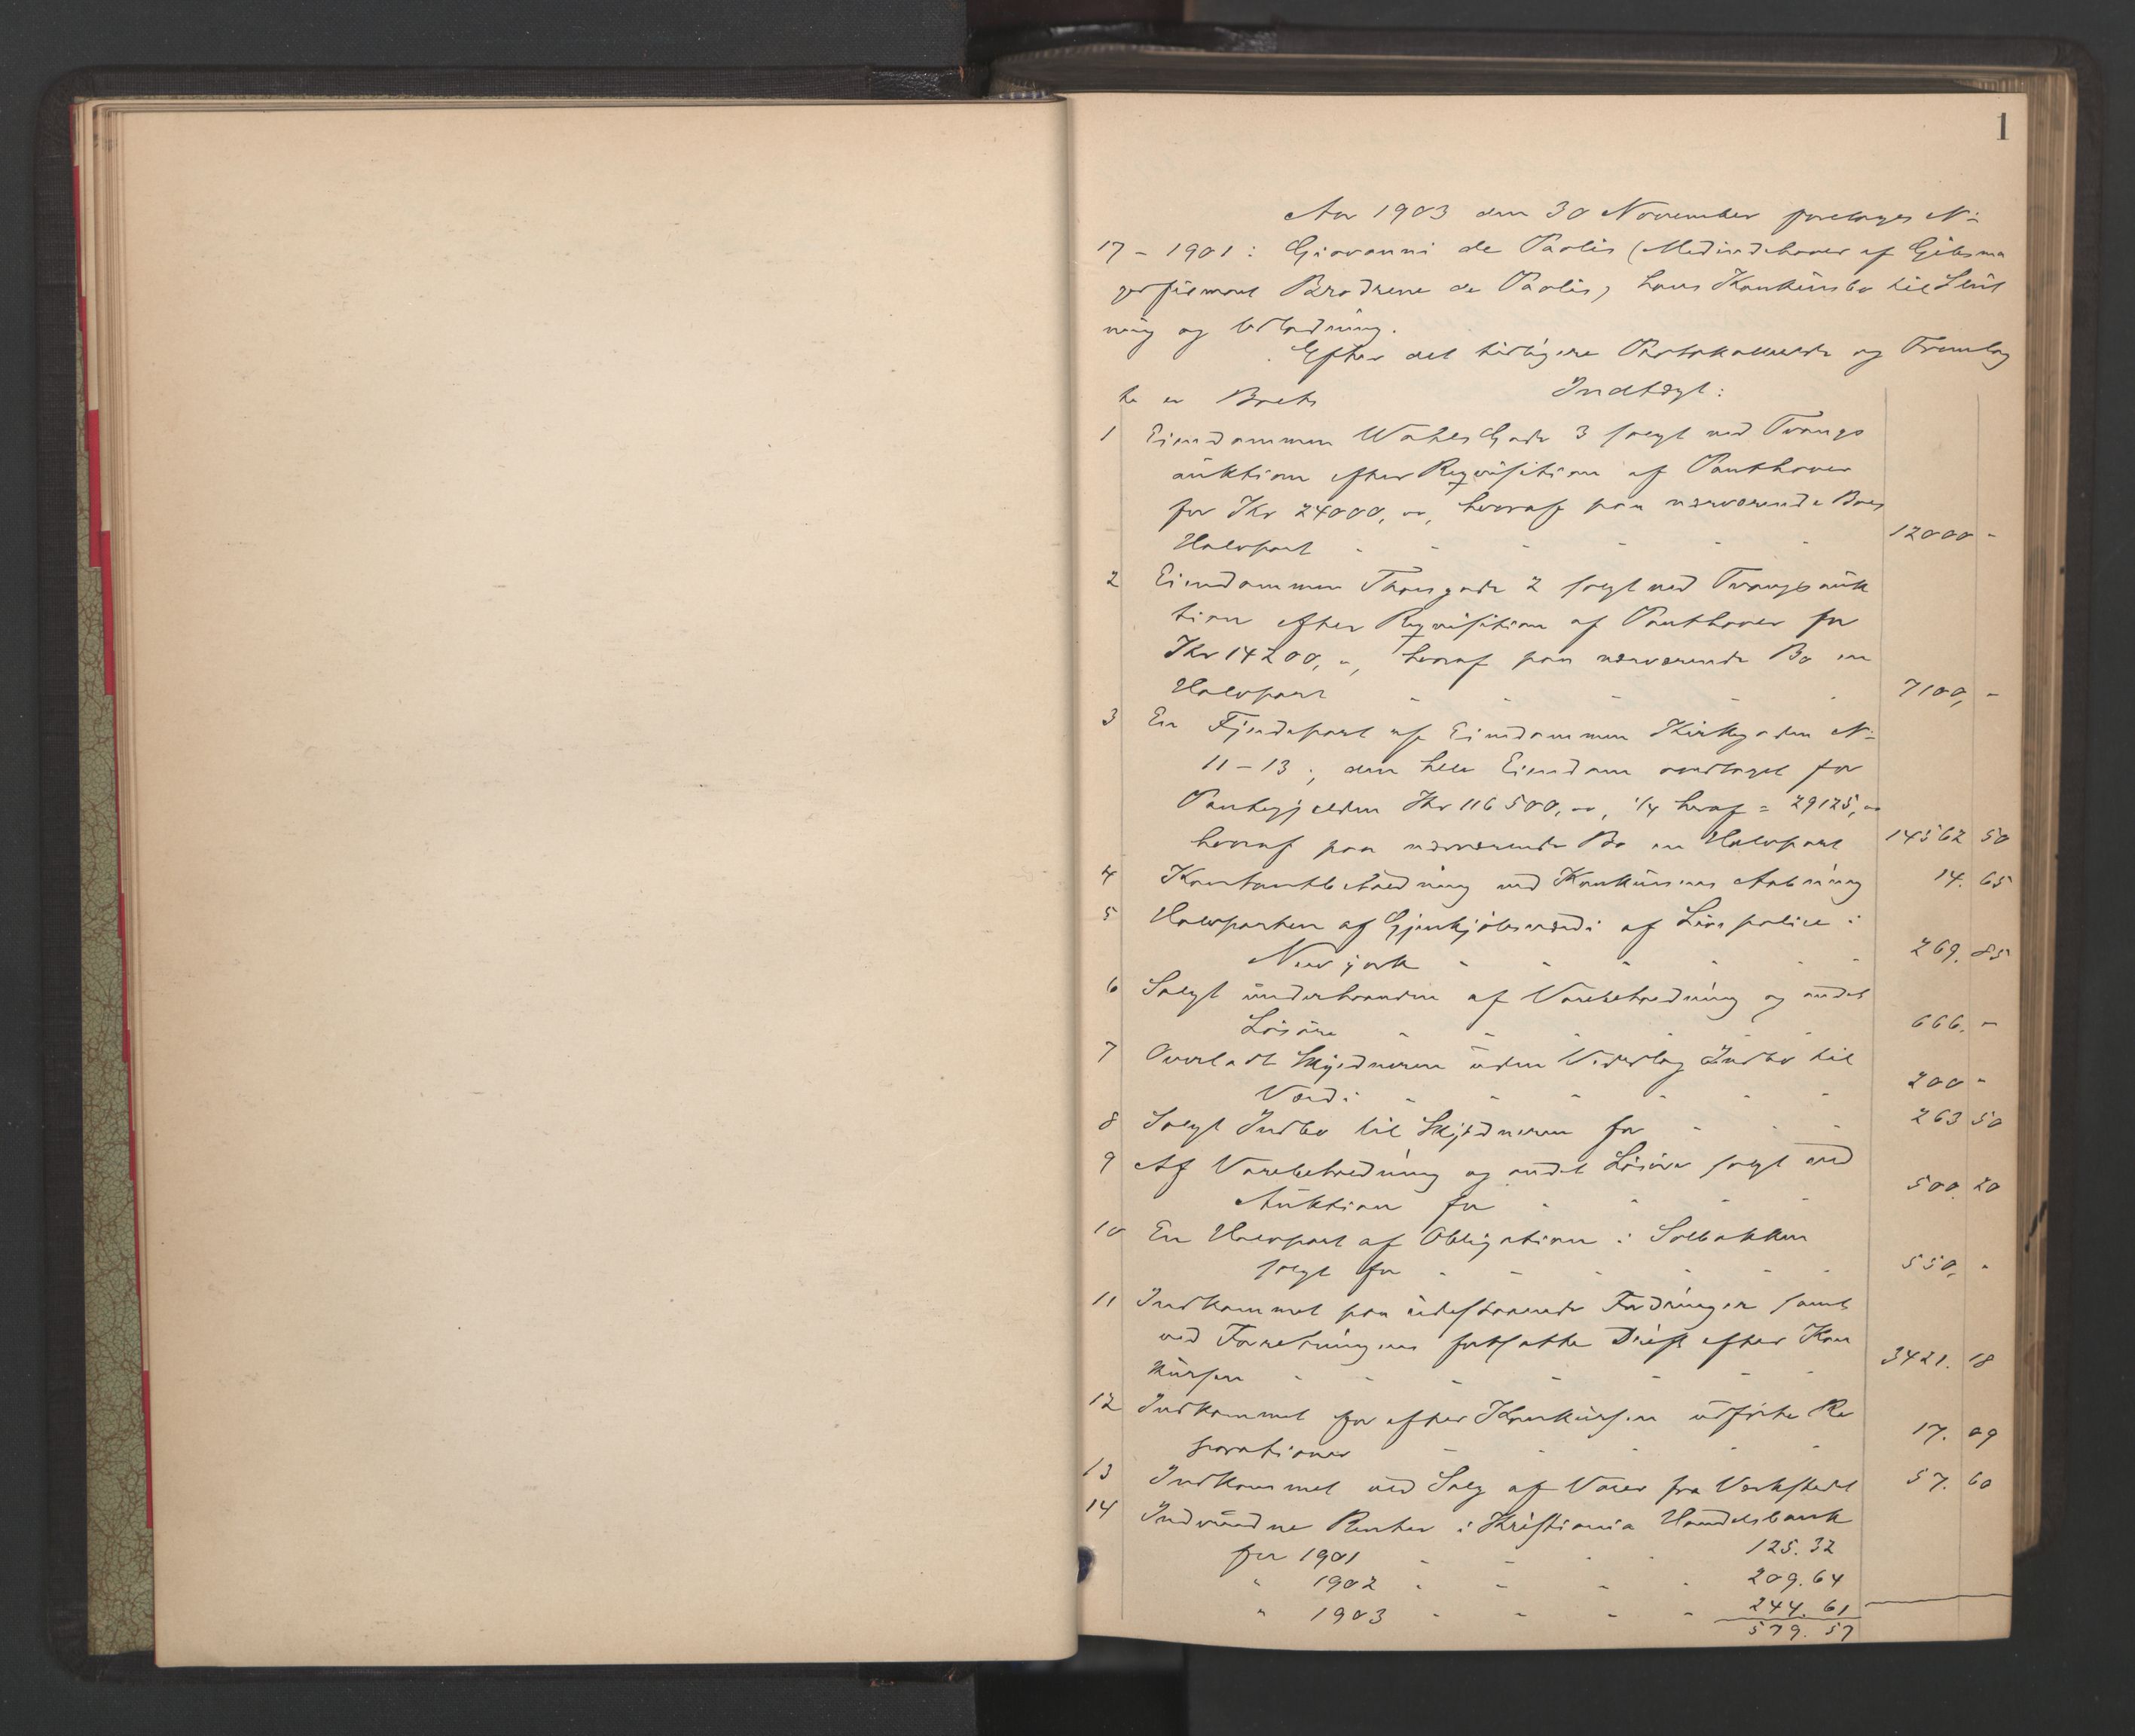 1
Aar 1903 den 30 November foretoges No
17 – 1901: Giovanni de Paolis (Medindehaver af Gibsma
gerfirmaet Brødrene de Paolis) hans Konkursbo til Slut
ning og Udlodning.
Efter det tidligere Protokollerede og Fremlag
te er Boets Indtægt:
1 Eiendommen Wahls Gade 3 solgt ved Tvangs
auktion efter Reqvisition af Panthaver
for Kr 24000, –, hvoraf paa nærværende Boes
Halvpart - - - - - - 12000 -
2 Eiendommen Thorsgade 2 solgt ved Tvangsauk
tion efter Reqvisition af Panthaver for
Kr 14200, –, hvoraf paa nærværende Bo en
Halvpart - - - - - 7100, -
3 En Fjerdepart af Eiendommen Kirkegaden No
11 – 13; den hele Eiendom overtaget for
Pantegjælden Kr 116500, –, 1/4 heraf = 29125, –
hvoraf paa nærværende Bo en Halvpart 14562 50
4 Kontantbeholdning ved Konkursens Aabning 14. 65
5 Halvparten af Gjenkjøbsværdi af Livspolice i
New york - - - - - - 269. 85
6 Solgt underhaanden af Varebeholdning og andet
Løsøre - - - - - - 666. –
7 Overladt Skyldneren uden Vederlag Indbo til
Værdi - - - - - - 200 -
8 Solgt Indbo til Skyldneren for - - - 263 50
9 Af Varebeholdning og andet Løsøre solgt ved
Auktion for - - - - 500. 20
10 En Halvpart af Obligation i Solbakken
solgt for - - - - - - 550, -
11 Indkommet paa udestaaende Fordringer samt
ved Forretningens fortsatte Drift efter Kon
kursen - - - - - - - 3421. 18
12 Indkommet for efter Konkursen udførte Re
parationer - - - - - 17. 09
13 Indkommet ved Salg af Varer fra Verkstedet 57. 60
14 Indvundne Renter i Kristiania Handelsbank
for 1901 - - - - 125. 32
" 1902 - - - - 209. 64
" 1903 - - - - 244. 61
579. 57